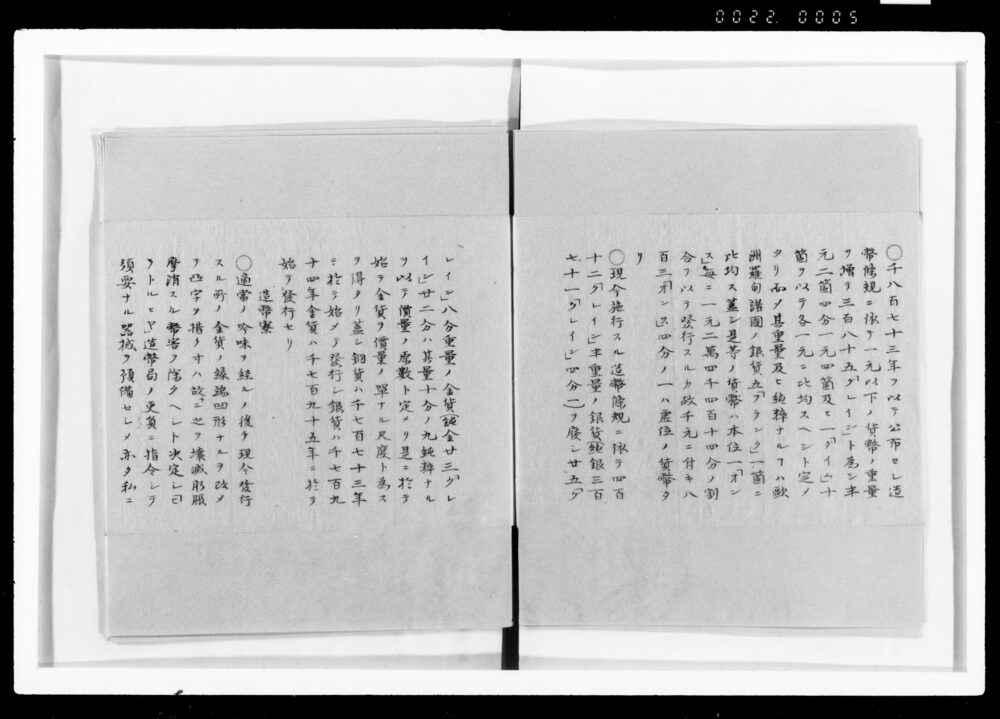 0022 0005
〇千八百七十三年ヲ以テ公布セレ造
幣條規ニ依テ一元以下ノ貨幣ノ重量
ヲ増テ三百八十五「グレイン」ト為シ半
元二箇四分一元四箇及ヒ一「ダイム」十
箇ヲ以テ各一元ニ比均スヘント定メ
タリ而メ其重量及ヒ純粋ナルヿハ歐
洲羅甸諸國ノ銀貨五「フランク」一箇ニ
比均ス蓋シ是等ノ貨幣ハ本位一「オン
ス」毎ニ一元二萬四千四百十四分ノ割
合ヲ以テ發行スルカ故千元ニ付キ八
百三「オンス」四分ノ一ハ虚位ノ貨幣タ
リ
〇現今施行スル造幣條規ニ依テ四百
十二「グレイン」半重量ノ銀貨純銀三百
七十一「グレイン」四分二ヲ廢シ廿五「グ
レイン」八分重量ノ金貨純金廿三「グレ
イン」廿二分ハ其量十分ノ九純粋ナル
ヲ以テ價量ノ原數ト定メリ是ニ於テ
始テ金貨ヲ價量ノ單ナル尺度ト為ス
ヲ得タリ蓋シ銅貨ハ千七百七十三年
ニ於テ始メテ發行シ銀貨ハ千七百九
十四年金貨ハ千七百九十五年ニ於テ
始テ發行セリ
造幣寮
〇適當ノ吟味ヲ経ルノ後チ現今發行
スル所ノ金貨ノ緣端凹形ナルヲ改メ
テ凸字ヲ措ク寸ハ故ニ之ヲ壊滅形脹
摩消スル幣害ヲ除クヘレト决定レ曰
ヲトルヒヤ造幣局ノ吏員ニ指令シテ
須要ナル器械ヲ預備セレメ亦タ私ニ